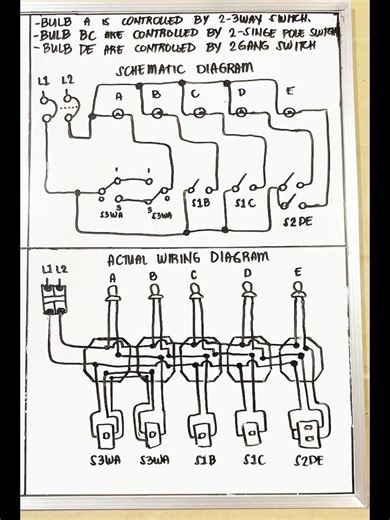 -BULB A IS CONTROLLED BY 2-3WAY SWITCH.
-BULB BC ARE CONTROLLED BY 2-SINGE POLE SWITCH
-BULB DE ARE CONTROLLED BY 2GANG SWITCH
SCHEMATIC DIAGRAM
L1 L2
A B C D E
1 1
0 0
3 3
S3WA S3WA S1B S1C S2DE
ACTUAL WIRING DIAGRAM
L1 L2
A B C D E
S3WA S3WA S1B S1C S2DE